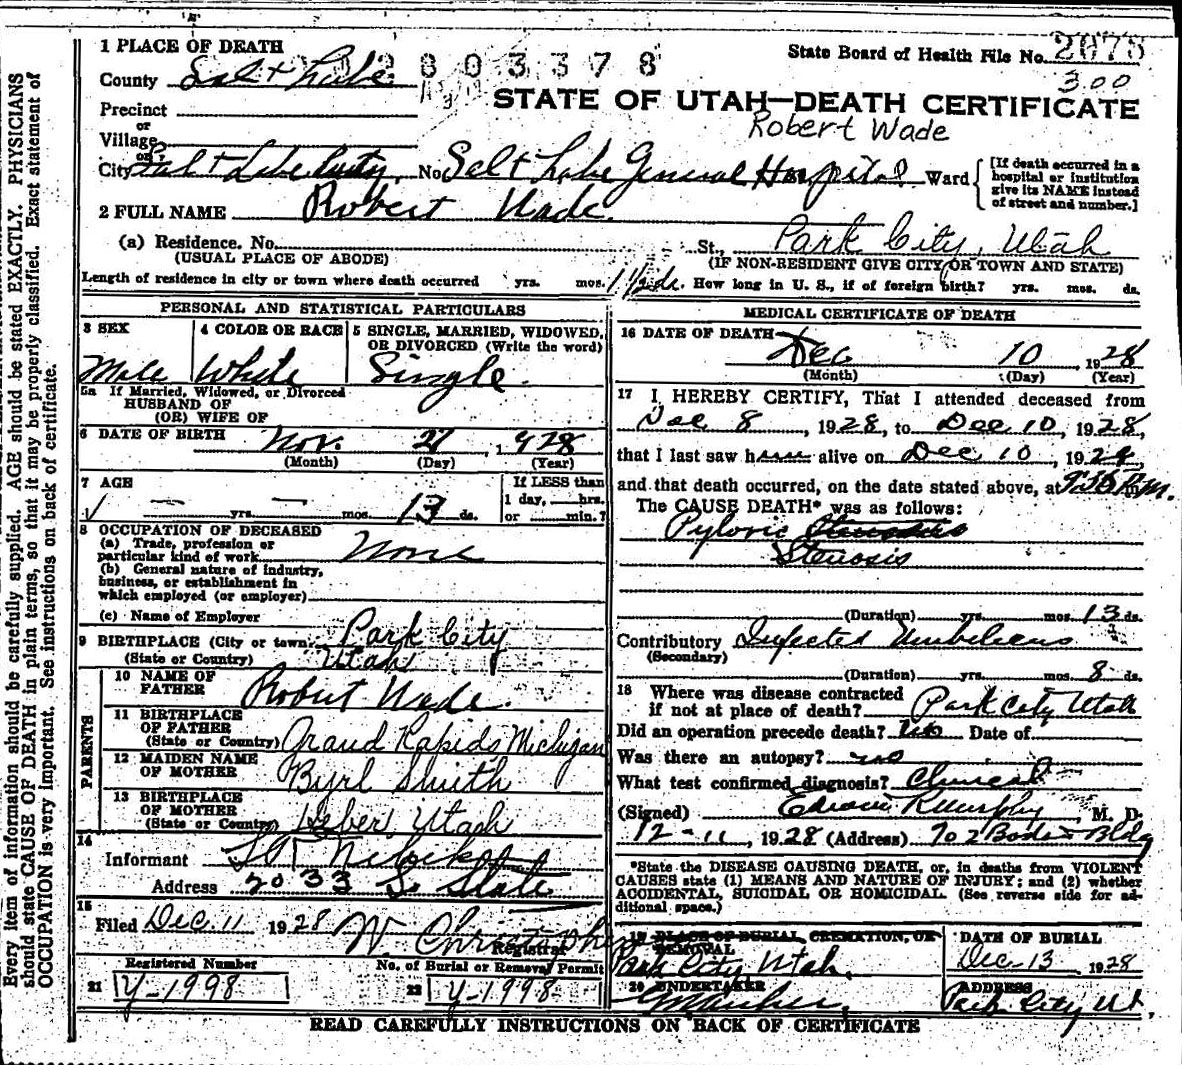 1 PLACE OF DEATH
2803378
State Board of Health File No. 2078
County Salt Lake
300
STATE OF UTAH—DEATH CERTIFICATE
Precinct
Robert Wade
or
Village
or
City Salt Lake City, No. Salt Lake General Hospital Ward
[If death occurred in a
hospital or institution
give its NAME instead
of street and number.]
2 FULL NAME Robert Wade.
(a) Residence. No. St., Park City, Utah
(USUAL PLACE OF ABODE) (IF NON-RESIDENT GIVE CITY OR TOWN AND STATE)
Length of residence in city or town where death occurred yrs. mos. 1 1/2 ds. How long in U. S., if of foreign birth? yrs. mos. ds.
PERSONAL AND STATISTICAL PARTICULARS
3 SEX 4 COLOR OR RACE 5 SINGLE, MARRIED, WIDOWED,
OR DIVORCED (Write the word)
Male White Single.
5a If Married, Widowed, or Divorced
HUSBAND OF
(OR) WIFE OF
6 DATE OF BIRTH Nov. 27, 1928
(Month) (Day) (Year)
7 AGE If LESS than
1 day, hrs.
— yrs. — mos. 13 ds. or min.?
8 OCCUPATION OF DECEASED
(a) Trade, profession or
particular kind of work None
(b) General nature of industry,
business, or establishment in
which employed (or employer)
(c) Name of Employer
9 BIRTHPLACE (City or town) Park City
(State or Country) Utah
PARENTS
10 NAME OF
FATHER Robert Wade.
11 BIRTHPLACE
OF FATHER
(State or Country) Grand Rapids Michigan
12 MAIDEN NAME
OF MOTHER Byrl Smith
13 BIRTHPLACE
OF MOTHER
(State or Country) Heber, Utah
14
Informant
Address 2033 S. State
15
Filed Dec. 11 1928 W
Registrar
Registered Number No. of Burial or Removal Permit
21 Y-1998 22 Y-1998
MEDICAL CERTIFICATE OF DEATH
16 DATE OF DEATH Dec 10 1928
(Month) (Day) (Year)
17 I HEREBY CERTIFY, That I attended deceased from
Dec 8, 1928, to Dec 10, 1928,
that I last saw him alive on Dec 10, 1928,
and that death occurred, on the date stated above, at P.M.
The CAUSE DEATH* was as follows:
Pyloric
Stenosis
(Duration) yrs. mos. 13 ds.
Contributory Infected Umbilicus
(Secondary)
(Duration) yrs. mos. 8 ds.
18 Where was disease contracted
if not at place of death? Park City Utah
Did an operation precede death? no Date of
Was there an autopsy? no
What test confirmed diagnosis? Clinical
(Signed) Edwin R Murphy, M. D.
12-11, 1928 (Address) 702 Boston Bldg
*State the DISEASE CAUSING DEATH, or, in deaths from VIOLENT
CAUSES state (1) MEANS AND NATURE OF INJURY; and (2) whether
ACCIDENTAL, SUICIDAL OR HOMICIDAL. (See reverse side for ad-
ditional space.)
19 PLACE OF BURIAL, CREMATION, OR
REMOVAL
Park City, Utah.
DATE OF BURIAL
Dec-13 1928
20 UNDERTAKER
ADDRESS
Park City Ut,
READ CAREFULLY INSTRUCTIONS ON BACK OF CERTIFICATE
Every item of information should be carefully supplied. AGE should be stated EXACTLY. PHYSICIANS
should state CAUSE OF DEATH in plain terms, so that it may be properly classified. Exact statement of
OCCUPATION is very important. See instructions on back of certificate.